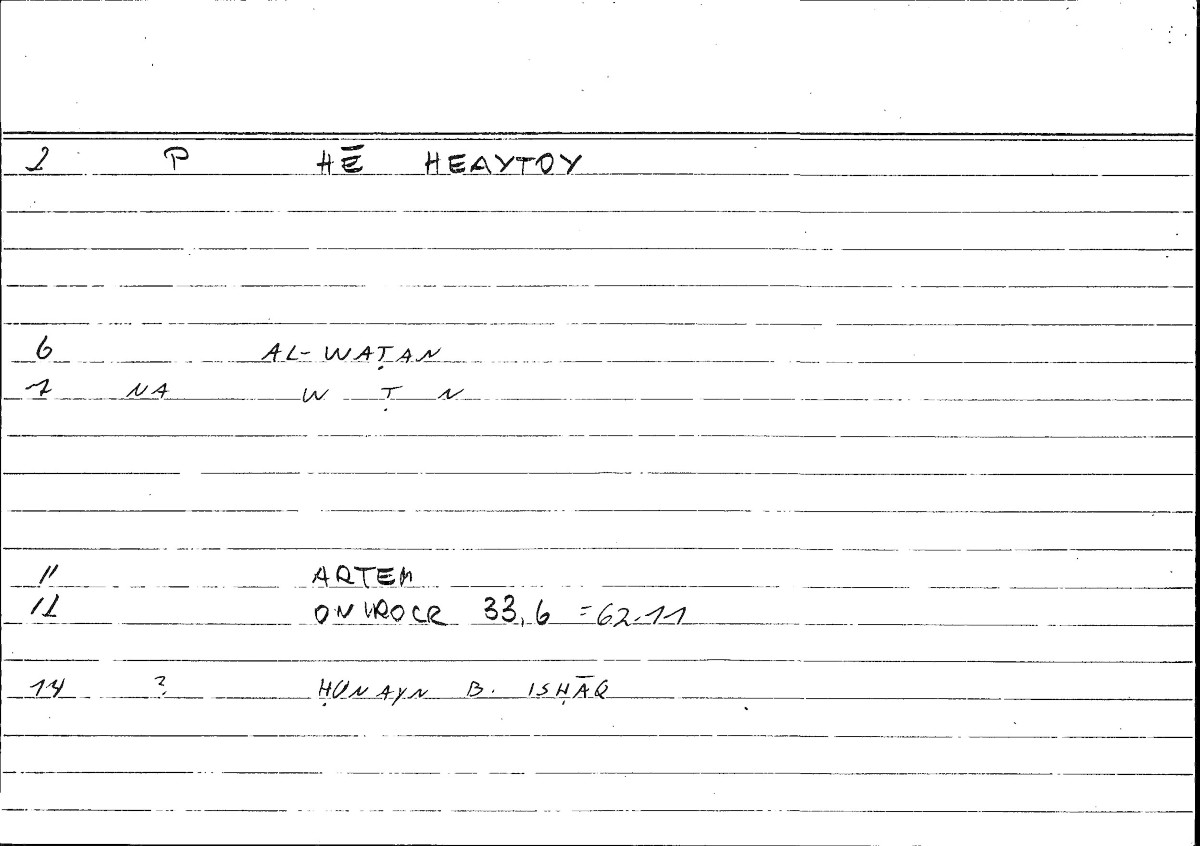 2 P HĒ HEAYTOY
6 AL-WAṬAN
7 NA W Ṭ N
11 ARTEM
12 ONIROCR 33,6 =62.11
14 ? ḤUNAYN B. ISḤĀQ